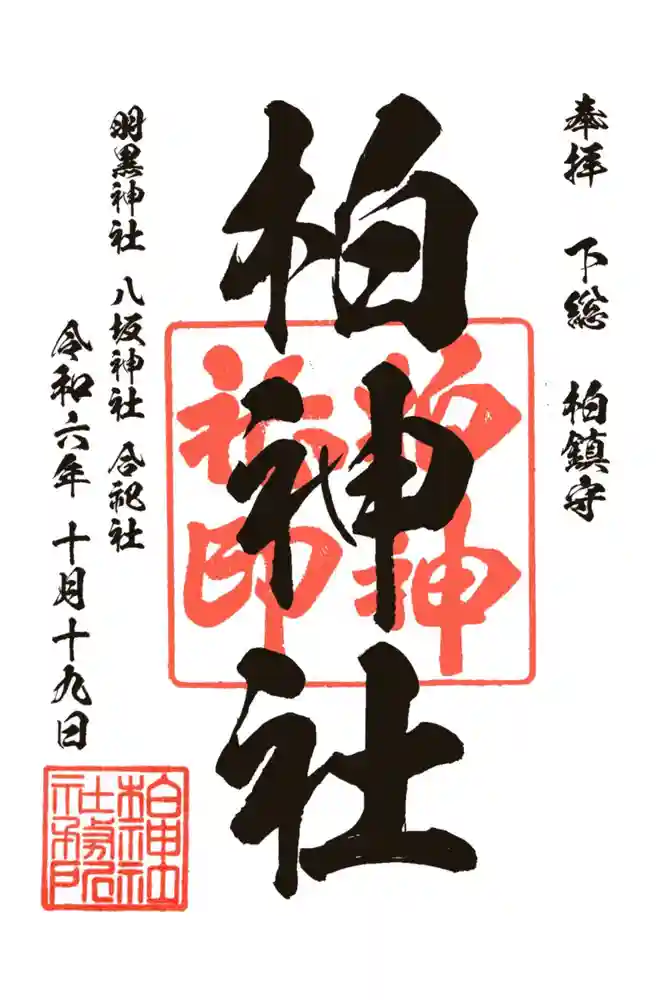 奉拝 下総 柏鎮守
柏神社
柏神
社印
羽黒神社 八坂神社 合祀社
令和六年 十月十九日
柏神社
社務所